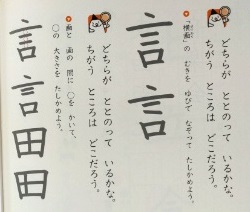 どちらが ととのって いるかな。
ちがう ところは どこだろう。
「横画」の むきを ゆびで なぞって たしかめよう。
言言
どちらが ととのって いるかな。
ちがう ところは どこだろう。
画と 画の 間に ○を かいて、
○の 大きさを たしかめよう。
言言田田